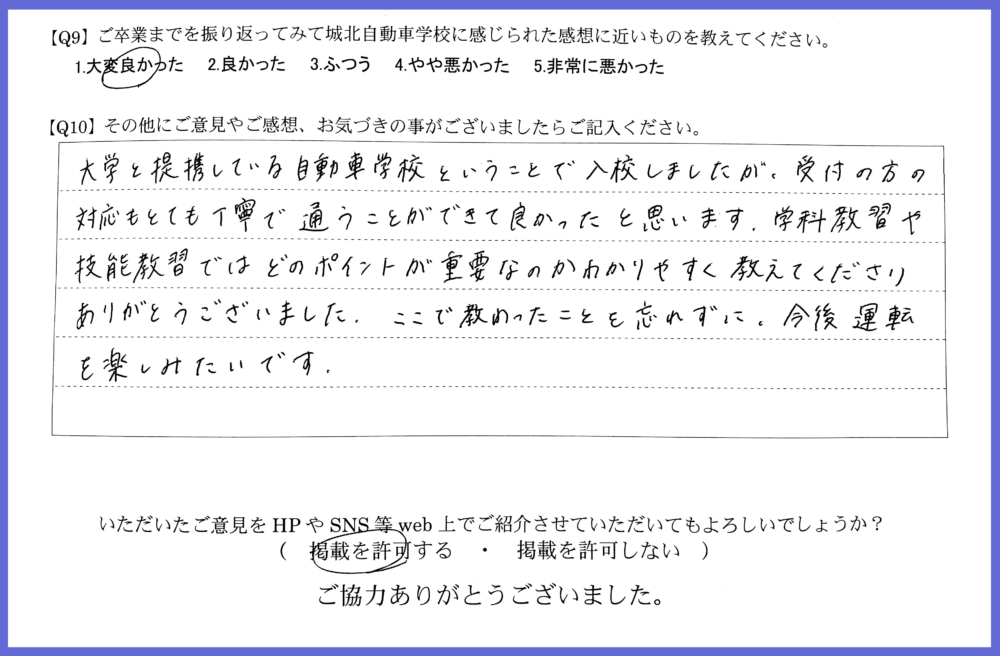 【Q9】ご卒業までを振り返ってみて城北自動車学校に感じられた感想に近いものを教えてください。
1.大変良かった 2.良かった 3.ふつう 4.やや悪かった 5.非常に悪かった
【Q10】その他にご意見やご感想、お気づきの事がございましたらご記入ください。
大学と提携している自動車学校ということで入校しましたが、受付の方の
対応もとても丁寧で通うことができて良かったと思います。学科教習や
技能教習ではどのポイントが重要なのかわかりやすく教えてくださり
ありがとうございました。ここで教わったことを忘れずに、今後運転
を楽しみたいです。
いただいたご意見をHPやSNS等web上でご紹介させていただいてもよろしいでしょうか？
（ 掲載を許可する ・ 掲載を許可しない ）
ご協力ありがとうございました。